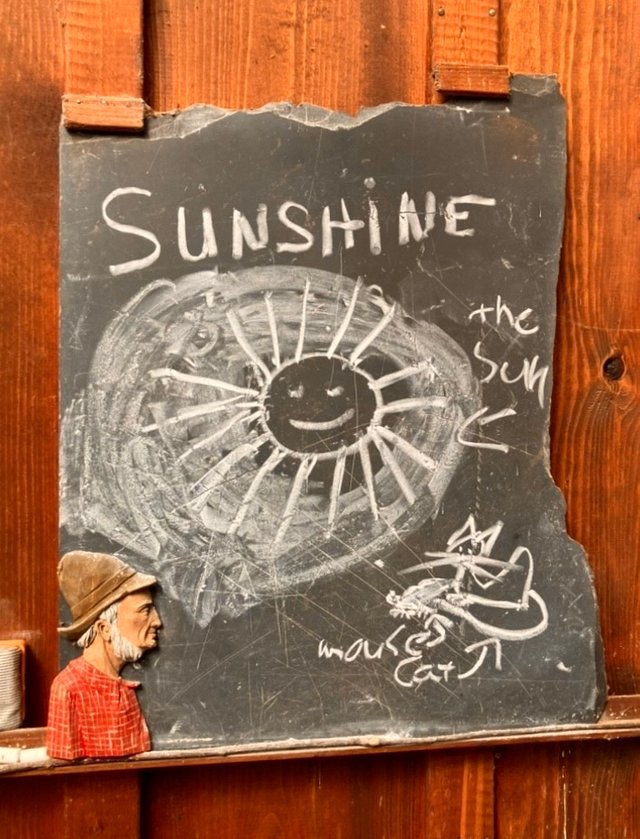 SUNSHiNE
the
sun
mouse
cat